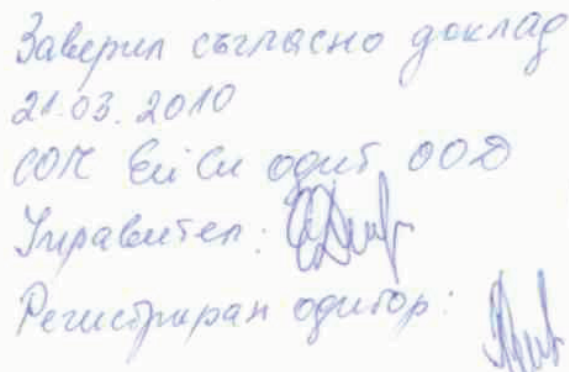 Заверил съгласно доклад
21.03.2010
СОП Ей Си одит ООД
Управител:
Регистриран одитор: